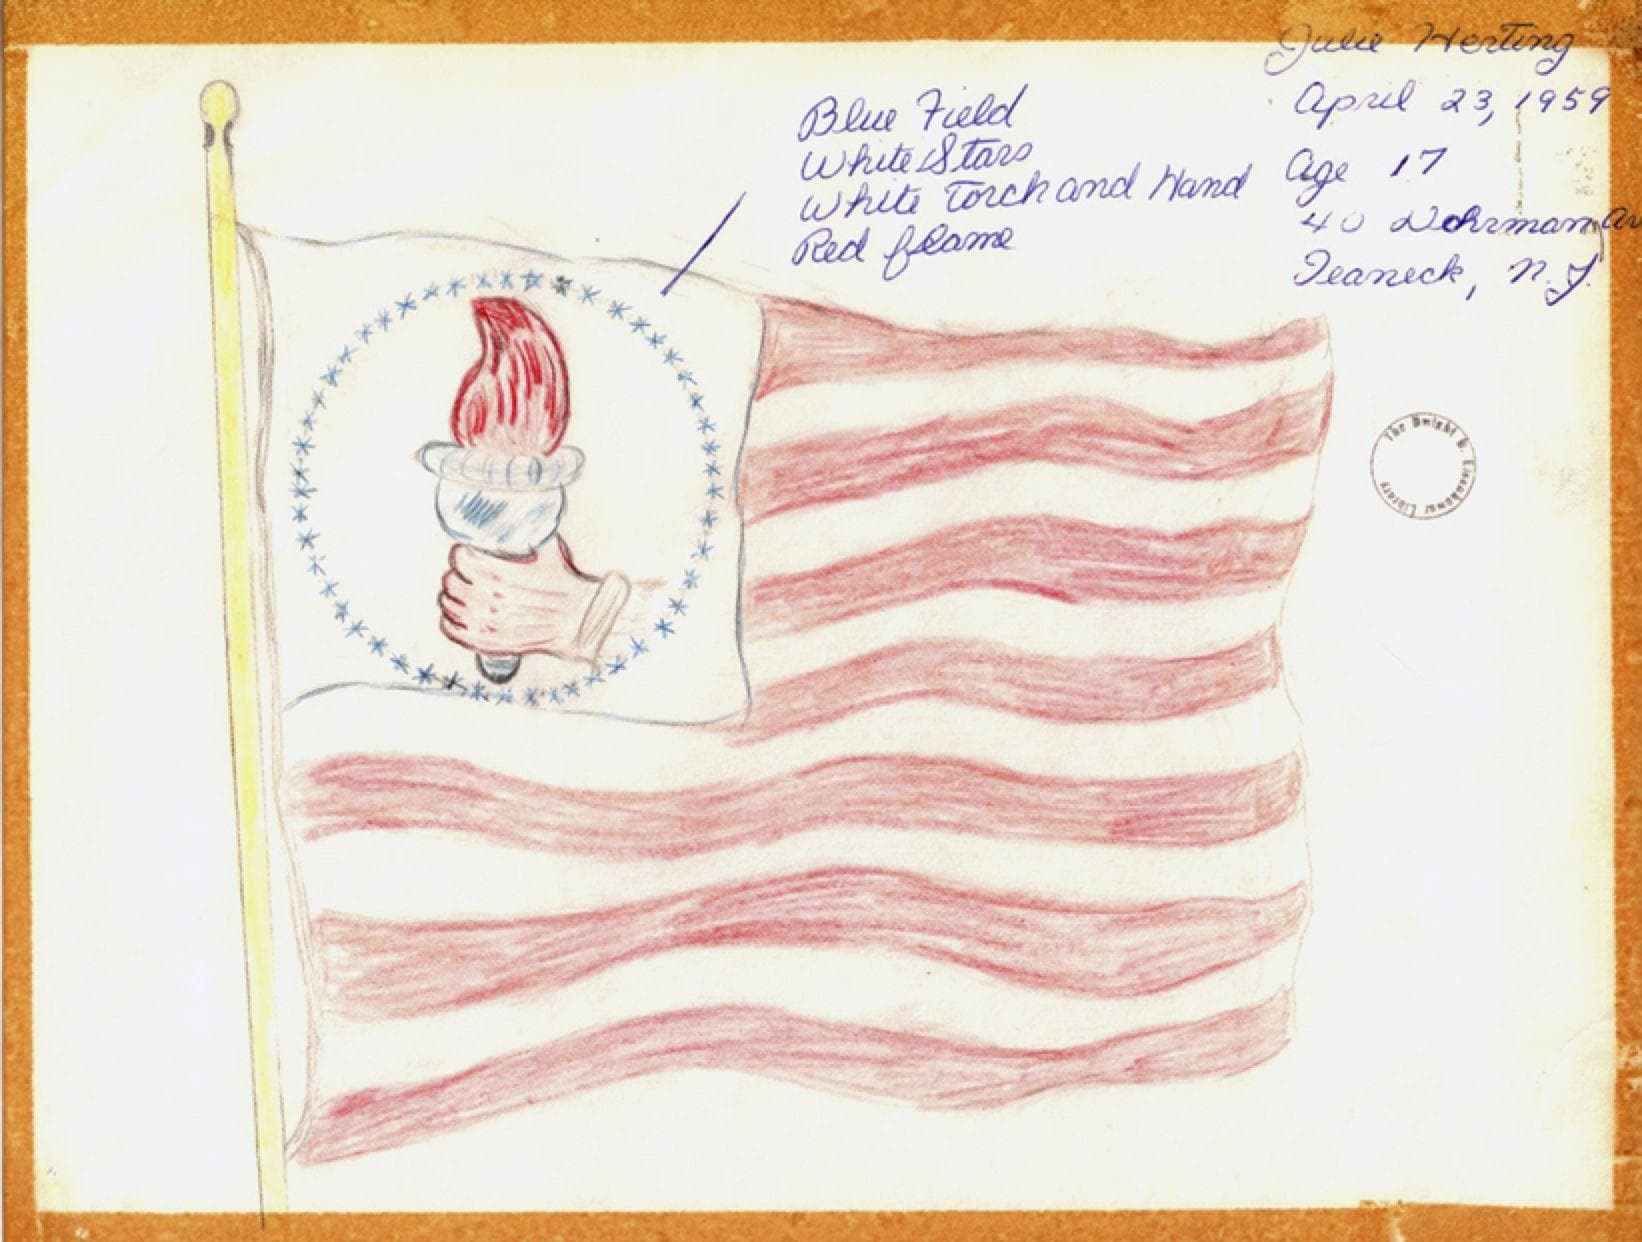 Julie Herting
April 23, 1959
Age 17
40
Teaneck, N.J.
Blue Field
White Stars
White Torch and Hand
Red flame
The Dwight D. Eisenhower Library